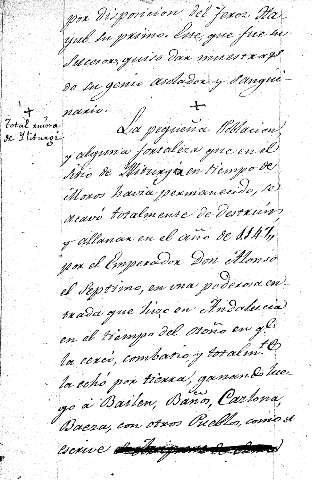 por disposicion del feroz Ha
yub su primo. Este, que fue su
succesor, quiso dar muestras
de su genio asolador y sangui-
nario. +
+
Total ruina
de Iliturgi
La pequeña Poblacion
y alguna fortaleza que en el
sitio de Iliturgi en tiempo de
Moros havia permanecido, se
acavó totalmente de destruir,
y allanar en el año de 1147,,
por el Emperador Don Alonso
el Septimo, en una poderosa en-
trada que hizo en Andalucia
en el tiempo del otoño en qᵉ.
la cercó, combatio y totalmᵗᵉ
la echó por tierra, ganando lue-
go à Bailen, Baños, Cazlona,
Baeza, con otros Pueblos, como se
escrive